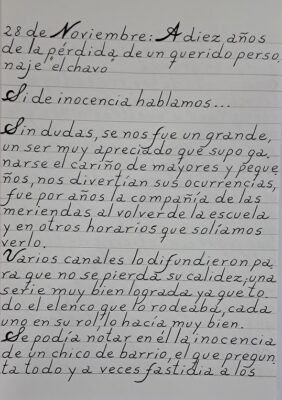 28 de Noviembre: A diez años
de la pérdida de un querido perso
naje "el chavo"
Si de inocencia hablamos...
Sin dudas, se nos fue un grande,
un ser muy apreciado que supo ga
narse el cariño de mayores y peque
ños, nos divertían sus ocurrencias,
fue por años la compañía de las
meriendas al volver de la escuela
y en otros horarios que solíamos
verlo.
Varios canales lo difundieron pa
ra que no se pierda su calidez, una
serie muy bien lograda ya que to
do el elenco que lo rodeaba, cada
uno en su rol, lo hacía muy bien.
Se podía notar en él la inocencia
de un chico de barrio, el que pregun
ta todo y a veces fastidia a los